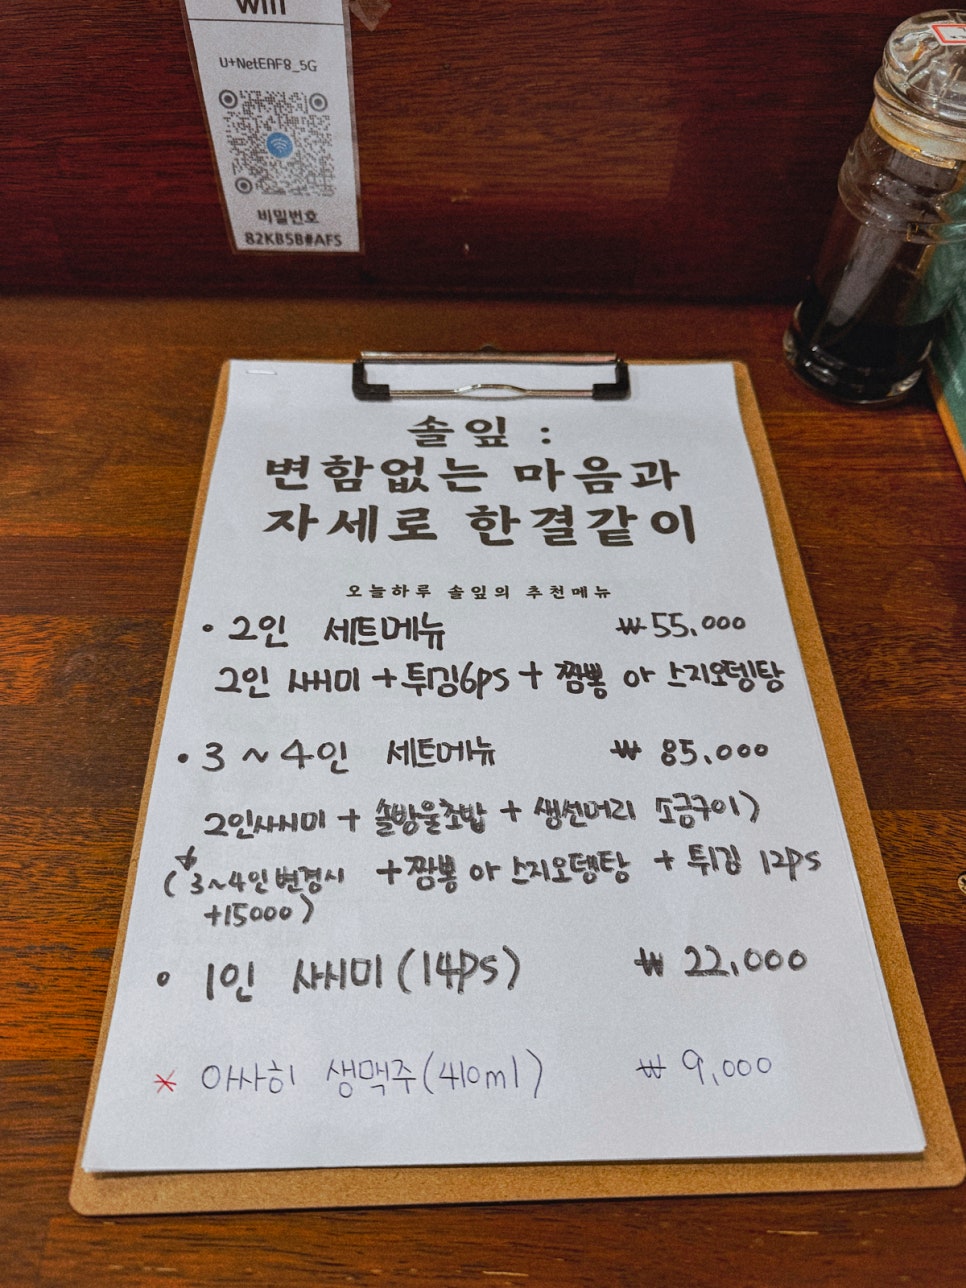 U+NetEAF8_5G
비밀번호
82KB5B#AF5
솔잎 :
변함없는 마음과
자세로 한결같이
오늘하루 솔잎의 추천메뉴
• 2인 세트메뉴 ₩55,000
2인 사시미 + 튀김6ps + 짬뽕 or 스지오뎅탕
• 3~4인 세트메뉴 ₩ 85,000
2인사시미 + 솔방울초밥 + 생선머리 소금구이)
(*3~4인 변경시 + 짬뽕 or 스지오뎅탕 + 튀김 12ps
+15000)
• 1인 사시미(14ps) ₩ 22,000
* 아사히 생맥주(410ml) ₩ 9,000